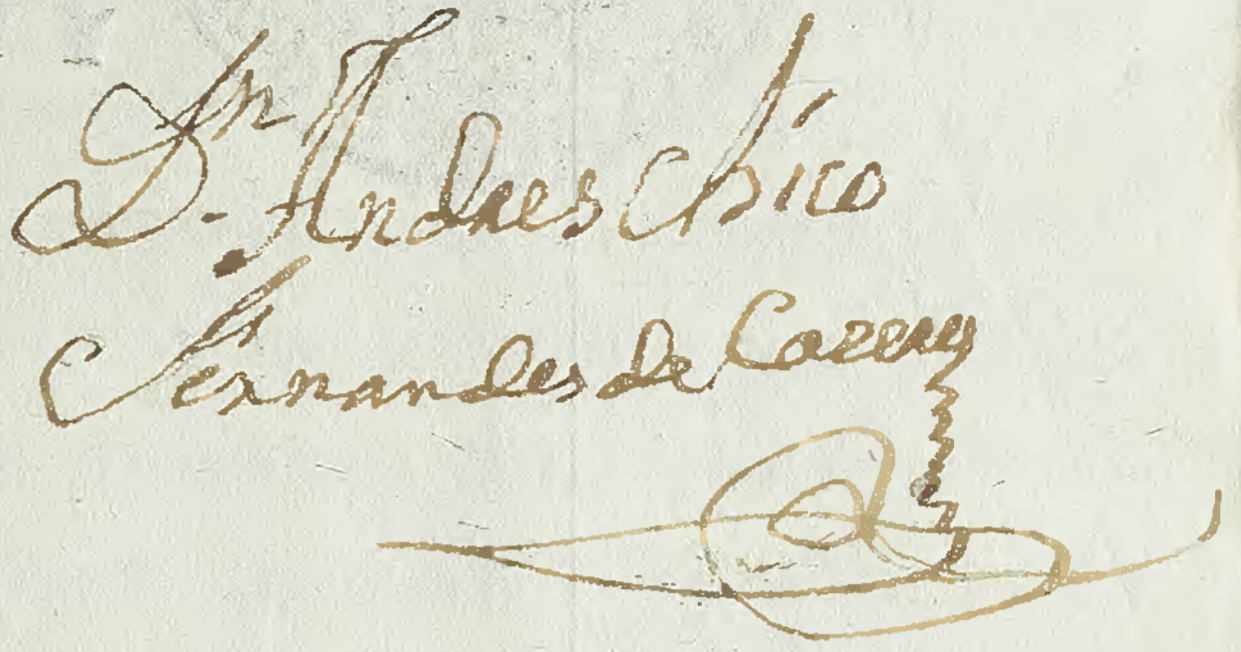 Dn. Andres Chico
Fernandes de